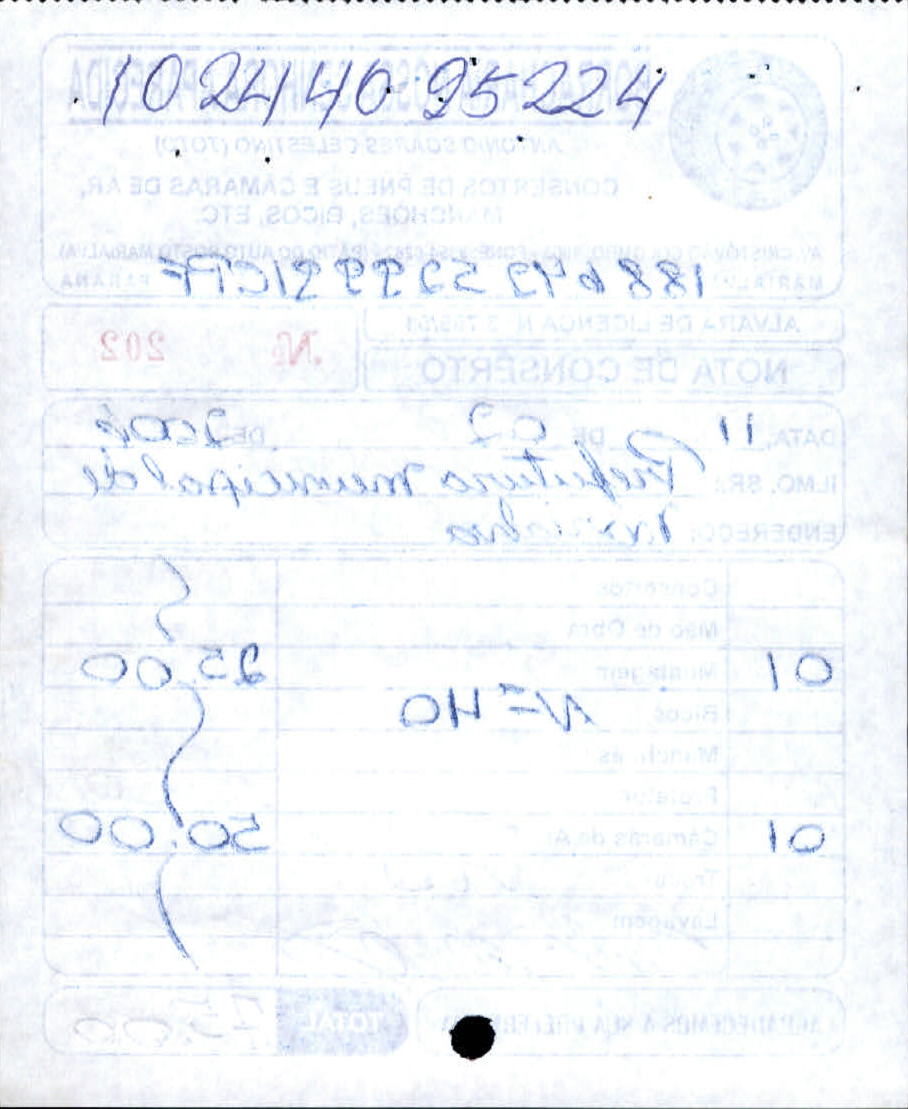 10244095224
BORRACHARIA NOSSA SENHORA APARECIDA
ANTONIO SOARES CELESTINO (TOTO)
CONSERTOS DE PNEUS E CÂMARAS DE AR,
MANCHÕES, BICOS, ETC.
AV. CRISTÓVÃO COLOMBO, (PÁTIO DO AUTO POSTO MARIALVA)
MARIALVA PARANÁ
CPF
ALVARÁ DE LICENÇA N.
NOTA DE CONSERTO Nº 202
DATA, 11 DE 02 DE
ILMO. SR. Prefeitura municipal de
ENDEREÇO:
Consertos
Mão de Obra
01 Montagem 25,00
Bicos N=40
Manchões
Protetor
01 Câmaras de Ar 50,00
Lavagem
AGRADECEMOS A SUA PREFERÊNCIA TOTAL 75,00